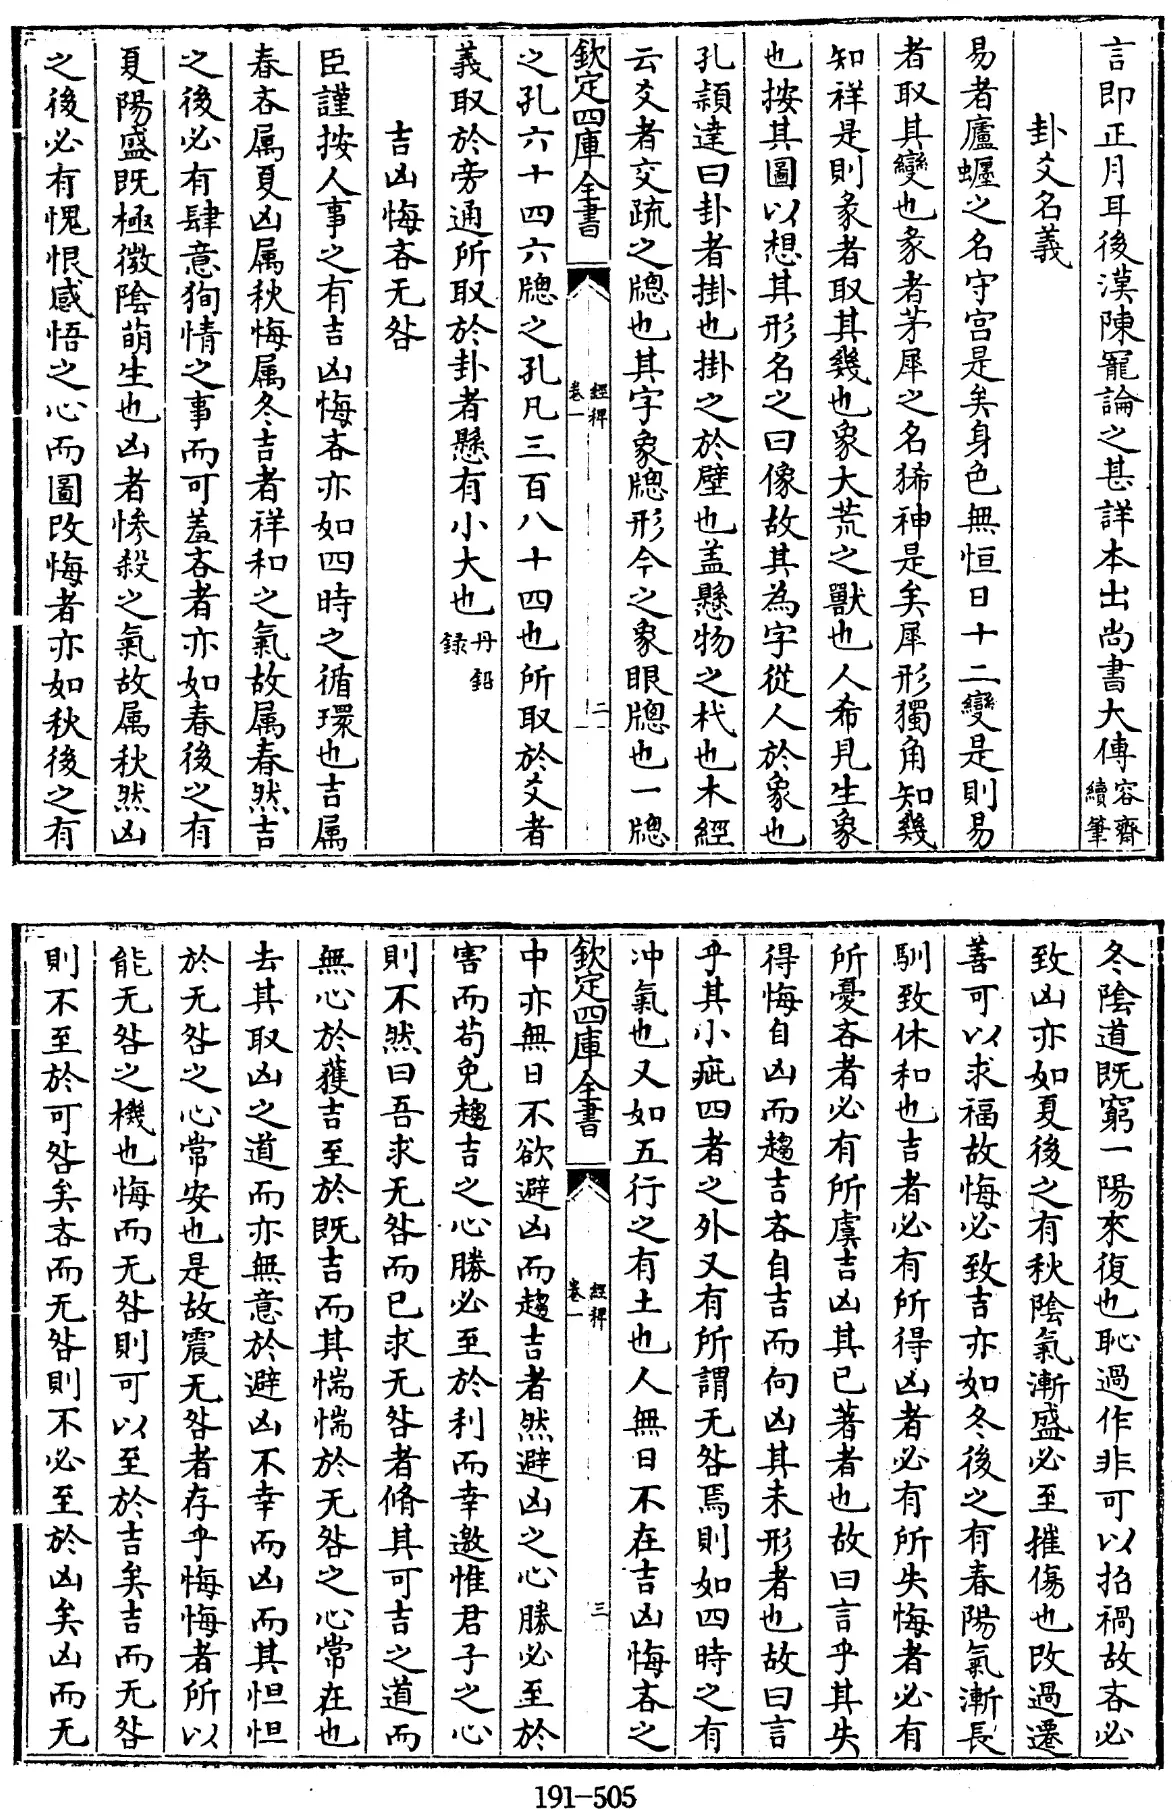 言即正月耳後漢陳寵論之甚詳本出尚書大傳容齋續筆
卦爻名義
易者廬蠦之名守宮是矣身色無恒日十二變是則易
者取其變也彖者茅犀之名狶神是矣犀形獨角知幾
知祥是則彖者取其幾也象大荒之獸也人希見生象
也按其圖以想其形名之曰像故其為字從人於象也
孔穎達曰卦者掛也掛之於壁也盖懸物之杙也木經
云爻者交疏之牕也其字象牕形今之象眼牕也一牕
欽定四庫全書
經稗
卷一
二
之孔六十四六牕之孔凡三百八十四也所取於爻者
義取於旁通所取於卦者懸有小大也丹鉛錄
吉凶悔吝无咎
臣謹按人事之有吉凶悔吝亦如四時之循環也吉属
春吝属夏凶属秋悔属冬吉者祥和之氣故属春然吉
之後必有肆意狥情之事而可羞吝者亦如春後之有
夏陽盛既極微陰萌生也凶者慘殺之氣故属秋然凶
之後必有愧恨感悟之心而圖改悔者亦如秋後之有
冬陰道既窮一陽來復也恥過作非可以招禍故吝必
致凶亦如夏後之有秋陰氣漸盛必至摧傷也改過遷
善可以求福故悔必致吉亦如冬後之有春陽氣漸長
馴致休和也吉者必有所得凶者必有所失悔者必有
所憂吝者必有所虞吉凶其已著者也故曰言乎其失
得悔自凶而趨吉吝自吉而向凶其未形者也故曰言
乎其小疵四者之外又有所謂无咎焉則如四時之有
冲氣也又如五行之有土也人無日不在吉凶悔吝之
欽定四庫全書
經稗
卷一
三
中亦無日不欲避凶而趨吉者然避凶之心勝必至於
害而苟免趨吉之心勝必至於利而幸邀惟君子之心
則不然曰吾求无咎而已求无咎者脩其可吉之道而
無心於獲吉至於既吉而其惴惴於无咎之心常在也
去其取凶之道而亦無意於避凶不幸而凶而其怛怛
於无咎之心常安也是故震无咎者存乎悔悔者所以
能无咎之機也悔而无咎則可以至於吉矣吉而无咎
則不至於可咎矣吝而无咎則不必至於凶矣凶而无
191-505